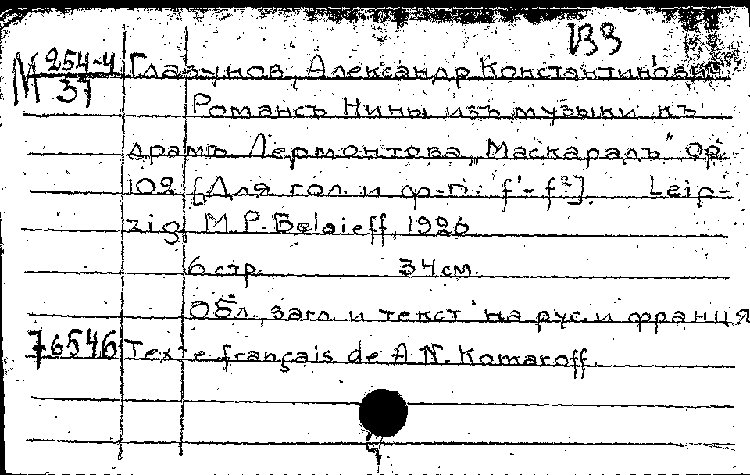 133
М 254-4 Глазунов, Александр Константинович.
37
Романсъ Нины изъ музыки къ
драмѣ Лермонтова „Маскарадъ" Op.
102 [Для гол. и ф-п. f¹-f²]. Leip-
zig M.P. Belaieff, 1926
6 стр. 34 см.
Обл., загл. и текст на рус. и франц. яз
76546 Texte français de A. N. Komaroff.